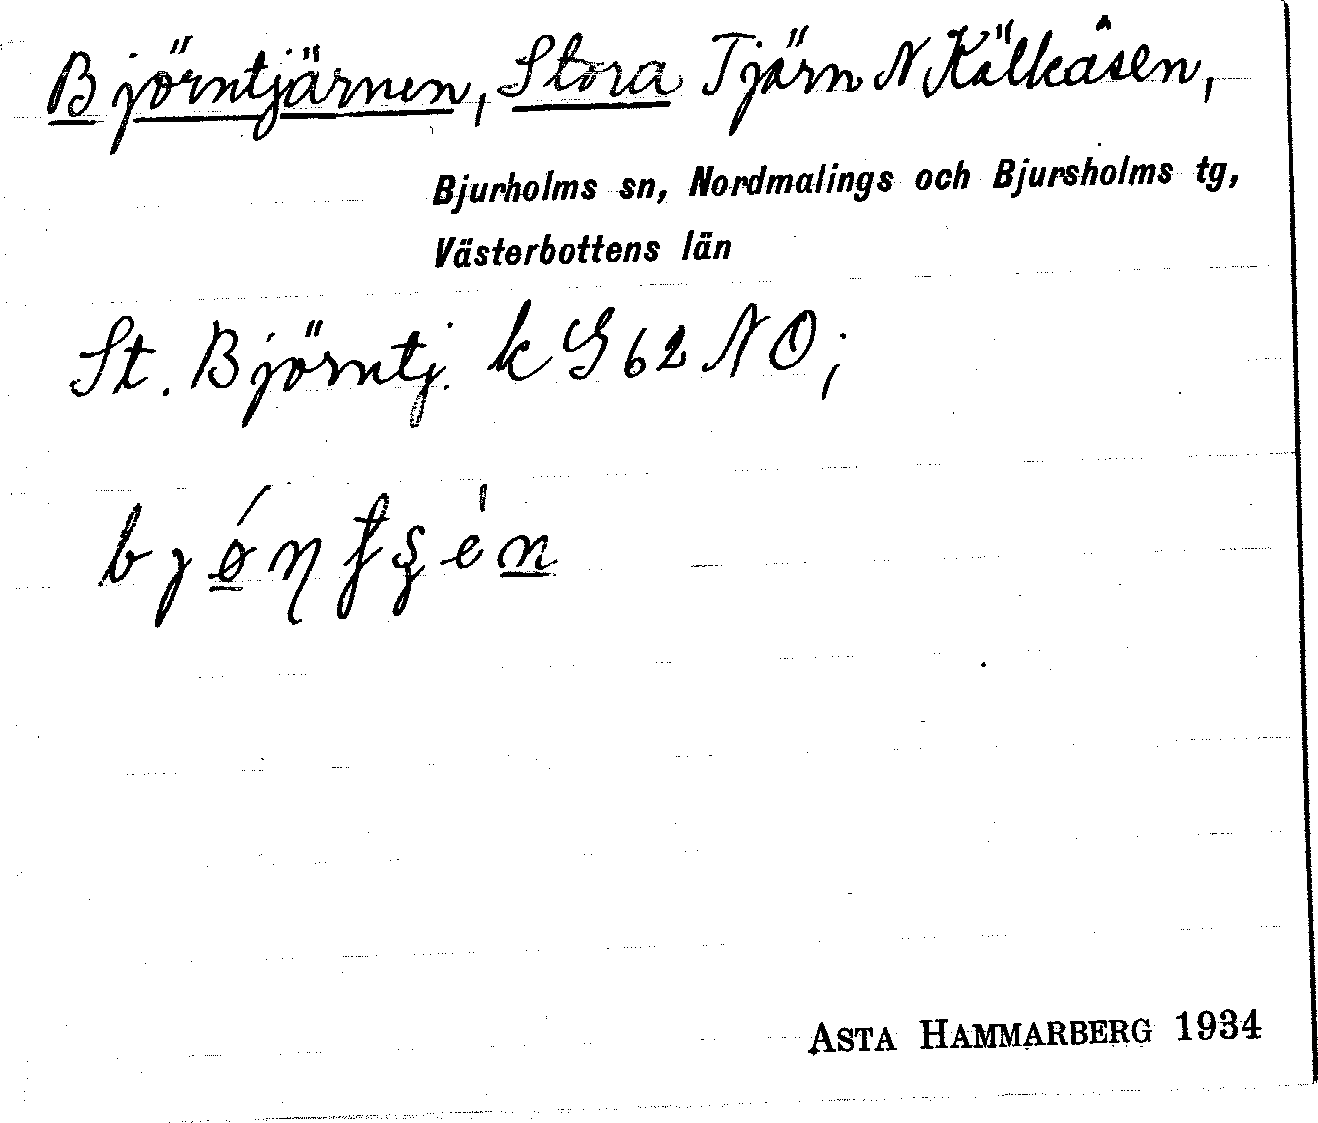 Björntjärnen, Stora Tjärn N Kälkåsen,
Bjurholms sn, Nordmalings och Bjursholms tg,
Västerbottens län
St. Björntj. k G 62 NO;
ASTA HAMMARBERG 1934